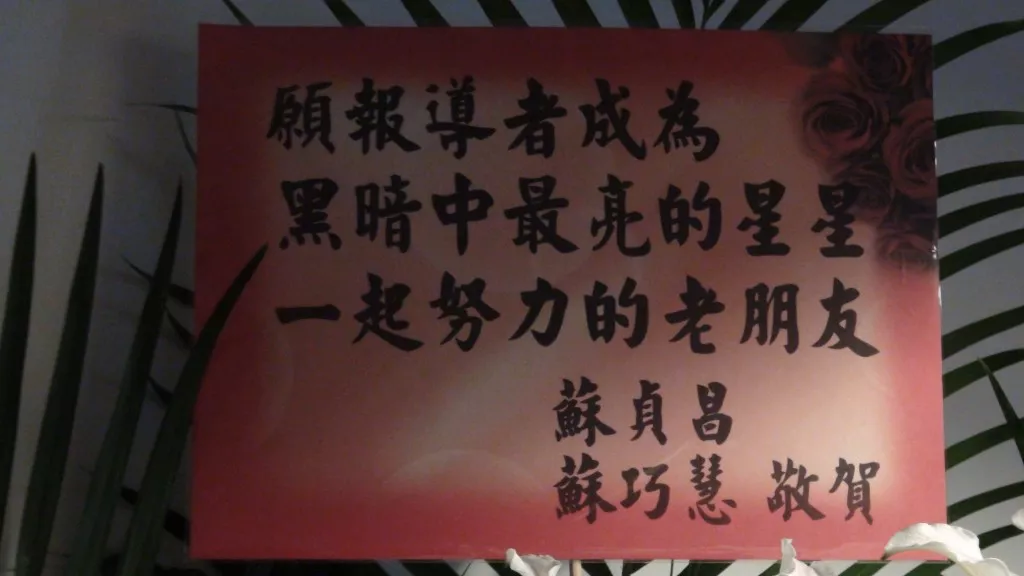 願報導者成為
黑暗中最亮的星星
一起努力的老朋友
蘇貞昌
蘇巧慧 敬賀